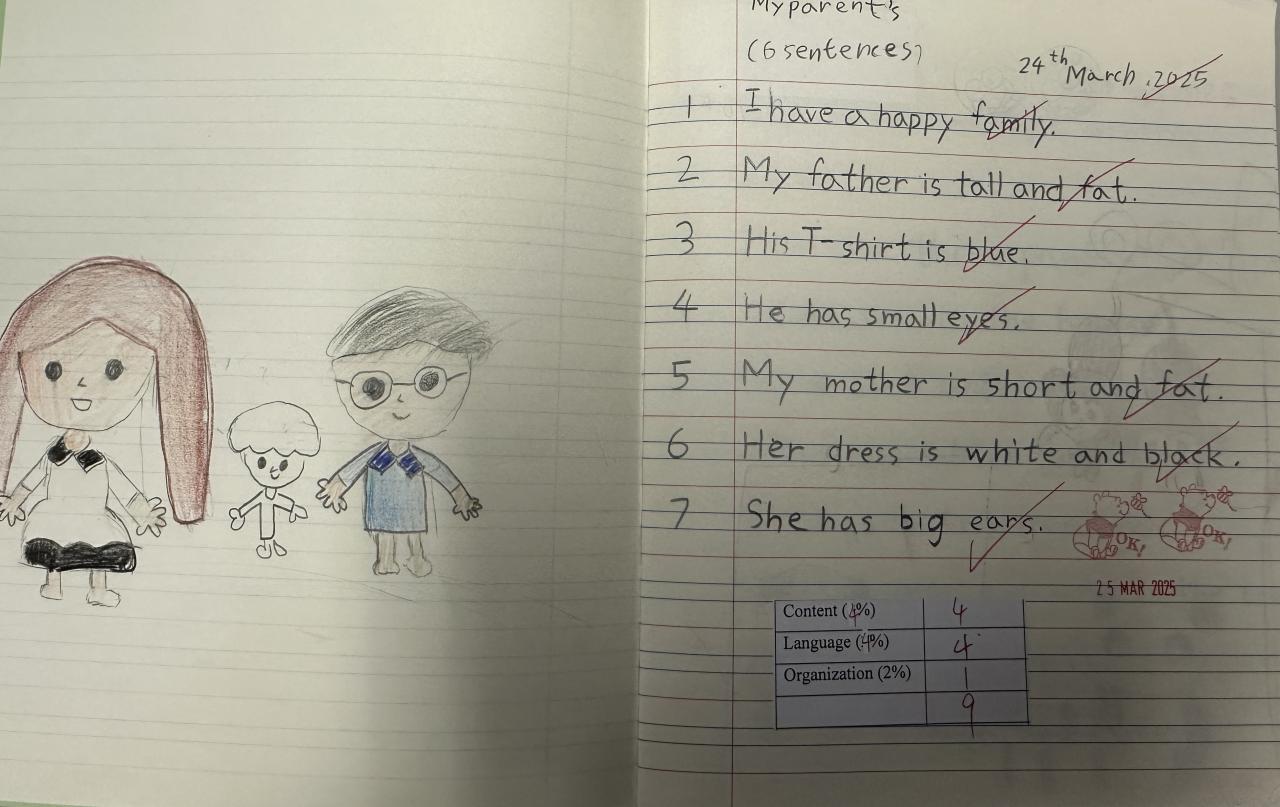 My parent's
(6 sentences)
24th March, 2025
1 I have a happy family.
2 My father is tall and fat.
3 His T-shirt is blue.
4 He has small eyes.
5 My mother is short and fat.
6 Her dress is white and black.
7 She has big ears.
OK! OK!
25 MAR 2025
Content (4%) 4
Language (4%) 4
Organization (2%) 1
9